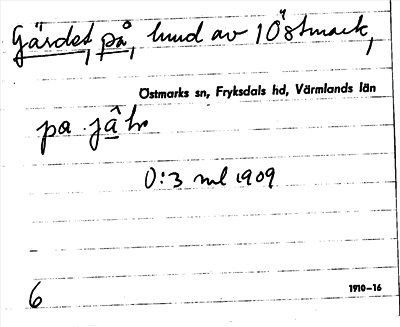 Gärdet, på, hmd av 1 Östmark,
Östmarks sn, Fryksdals hd, Värmlands län
pa
0:3 ml 1909
6
1910-16